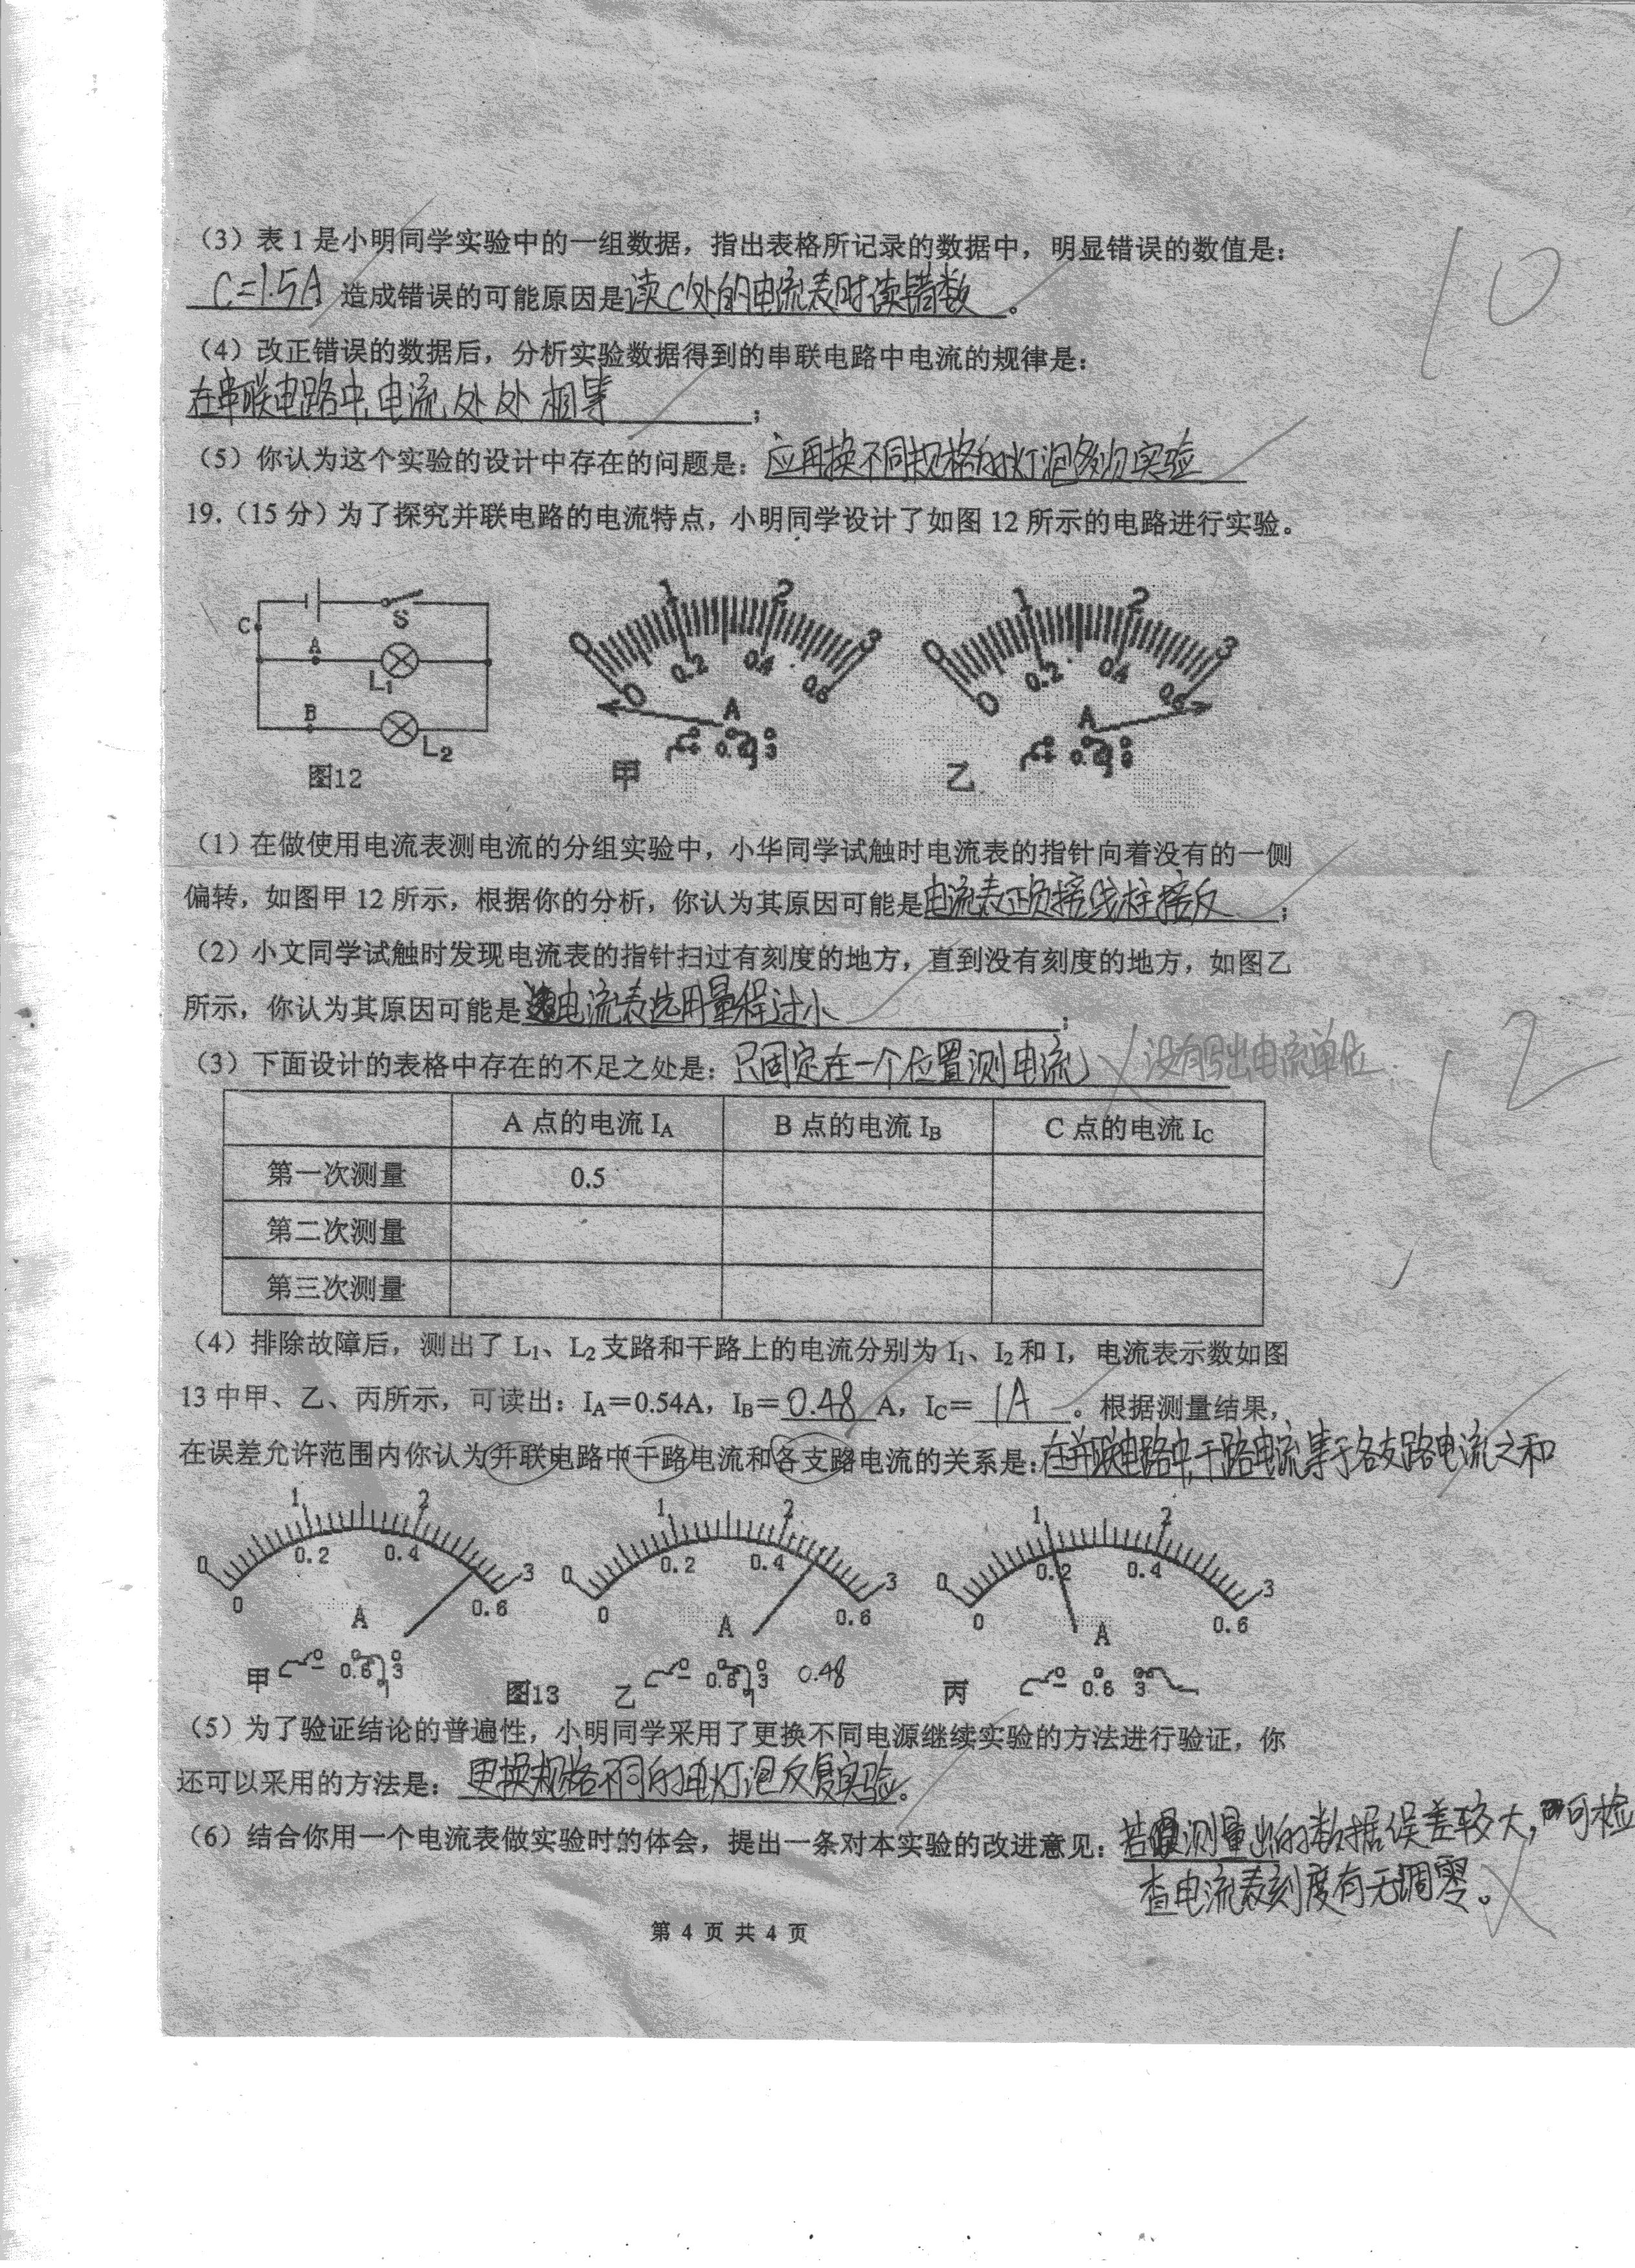 (3)表1是小明同学实验中的一组数据,指出表格所记录的数据中,明显错误的数值是:
C=1.5A 造成错误的可能原因是读C处的电流表时读错数。
(4)改正错误的数据后,分析实验数据得到的串联电路中电流的规律是:
在串联电路中,电流处处相等;
(5)你认为这个实验的设计中存在的问题是:应再换不同规格的灯泡多次实验
10
19.(15分)为了探究并联电路的电流特点,小明同学设计了如图12所示的电路进行实验。
C S
A L₁
B L₂
图12
0 1 2 3
0 0.2 0.4 0.6
A
甲
0 1 2 3
0 0.2 0.4 0.6
A
乙
(1)在做使用电流表测电流的分组实验中,小华同学试触时电流表的指针向着没有的一侧
偏转,如图甲12所示,根据你的分析,你认为其原因可能是电流表正负接线柱接反;
(2)小文同学试触时发现电流表的指针扫过有刻度的地方,直到没有刻度的地方,如图乙
所示,你认为其原因可能是电流表选用量程过小;
(3)下面设计的表格中存在的不足之处是:只固定在一个位置测电流 没有标出电流单位
12
A点的电流 I_A B点的电流 I_B C点的电流 I_C
第一次测量 0.5
第二次测量
第三次测量
(4)排除故障后,测出了L₁、L₂支路和干路上的电流分别为I₁、I₂和I,电流表示数如图
13中甲、乙、丙所示,可读出:I_A=0.54A,I_B=0.48 A,I_C=1A。根据测量结果,
在误差允许范围内你认为并联电路中干路电流和各支路电流的关系是:在并联电路中,干路电流等于各支路电流之和
0 1 2 3
0 0.2 0.4 0.6
A
甲 - 0.6 3
图13
0 1 2 3
0 0.2 0.4 0.6
A
乙 - 0.6 3 0.48
0 1 2 3
0 0.2 0.4 0.6
A
丙 - 0.6 3
(5)为了验证结论的普遍性,小明同学采用了更换不同电源继续实验的方法进行验证,你
还可以采用的方法是:更换规格不同的电灯泡反复实验。
(6)结合你用一个电流表做实验时的体会,提出一条对本实验的改进意见:若测量出的数据误差较大,可检
查电流表刻度有无调零。
第 4 页 共 4 页